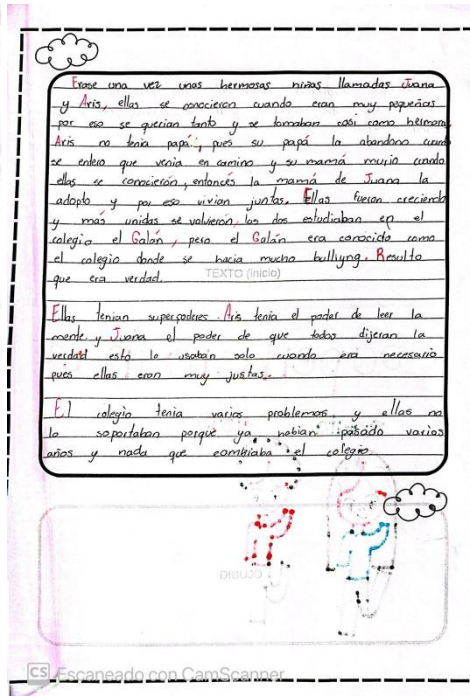 Erase una vez unas hermosas niñas llamadas Juana
y Aris, ellas se conocieron cuando eran muy pequeñas
por eso se querian tanto y se tomaban casi como hermana
Aris no tenia papá, pues su papá la abandono cuand
se entero que venia en camino y su mamá murio cuando
ellas se conocierón, entonces la mamá de Juana la
adopto y por eso vivian juntas. Ellas fueron creciendo
y más unidas se volvierón, las dos estudiaban en el
colegio el Galán, pero el Galán era conocido como
el colegio donde se hacia mucho bulliyng. Resulto
que era verdad.
TEXTO (inicio)
Ellas tenian superpoderes Aris tenia el poder de leer la
mente y Juana el poder de que todos dijeran la
verdad esto lo usabán solo cuando era necesario
pues ellas eran muy justas.
El colegio tenia varios problemas y ellas no
lo soportaban porque ya habian pasado varios
años y nada que cambiaba el colegio
DIBUJO
CS Escaneado con CamScanner